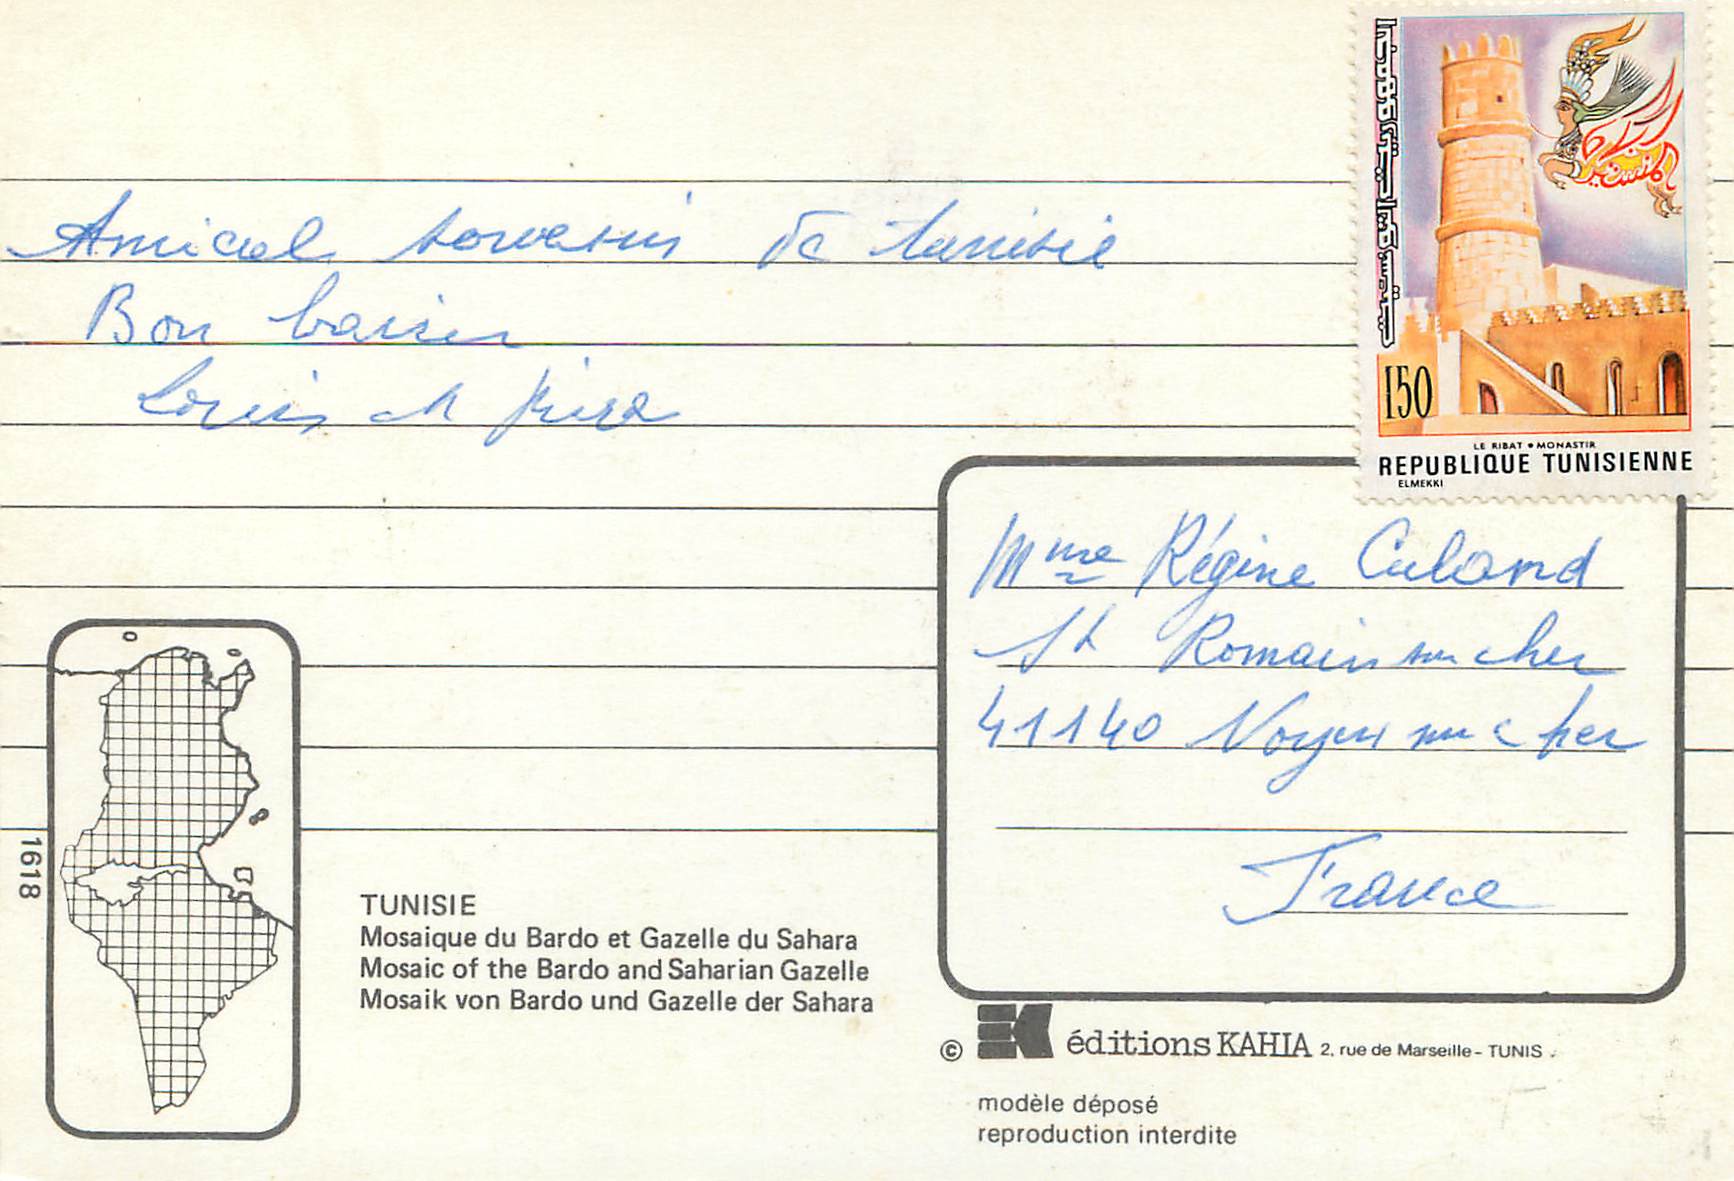 Amical souvenir de tunisie
Bon baiser
Louis et
الجمهورية التونسية
150
LE RIBAT • MONASTIR
REPUBLIQUE TUNISIENNE
ELMEKKI
Mme Régine
St Romain sur cher
41140 Noyers sur cher
France
1618
TUNISIE
Mosaique du Bardo et Gazelle du Sahara
Mosaic of the Bardo and Saharian Gazelle
Mosaik von Bardo und Gazelle der Sahara
© éditions KAHIA 2, rue de Marseille - TUNIS
modèle déposé
reproduction interdite